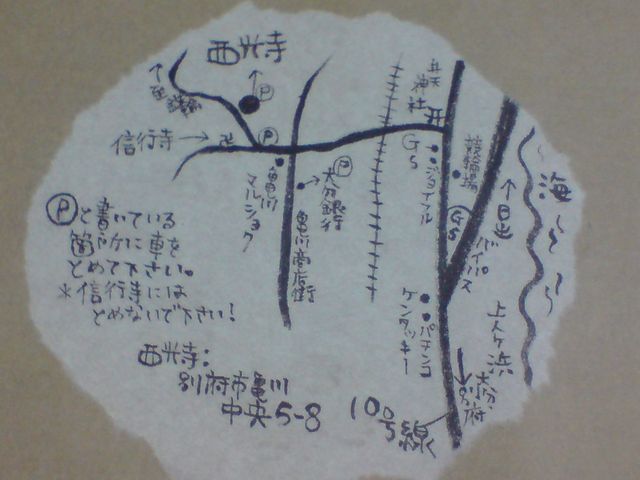 西光寺
Ⓟ
至
信行寺→
卍
Ⓟ
亀川マルショク
Ⓟ
大分銀行
亀川商店街
弁天神社
GS
ジョイフル
競輪場
GS
↑日出
バイパス
海
上人ヶ浜
ケンタッキー
パチンコ
大分・別府
10号線
Ⓟと書いている
箇所に車を
とめて下さい。
＊信行寺には
とめないで下さい!
西光寺:
別府市亀川
中央5-8